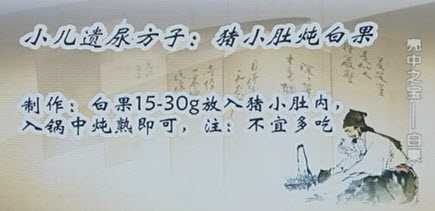 小儿遗尿方子：猪小肚炖白果
制作：白果15-30g放入猪小肚内，
入锅中炖熟即可，注：不宜多吃